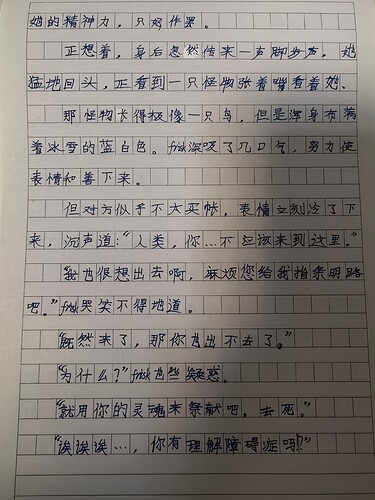 她的精神力，只好作罢。
正想着，身后忽然传来一声脚步声，她
猛地回头，正看到一只怪物张着嘴看着她。
那怪物长得极像一只鸟，但是浑身布满
着冰雪的蓝白色。frisk深吸了几口气，努力使
表情和善下来。
但对方似乎不大买帐，表情立刻冷了下
来，沉声道：“人类，你…不应该来到这里。”
“我也很想出去啊，麻烦您给我指条明路
吧。”frisk哭笑不得地道。
“既然来了，那你也出不去了。”
“为什么？”frisk有些疑惑。
“就用你的灵魂来祭献吧，去死。”
“诶诶诶…，你有理解障碍症吗!?”